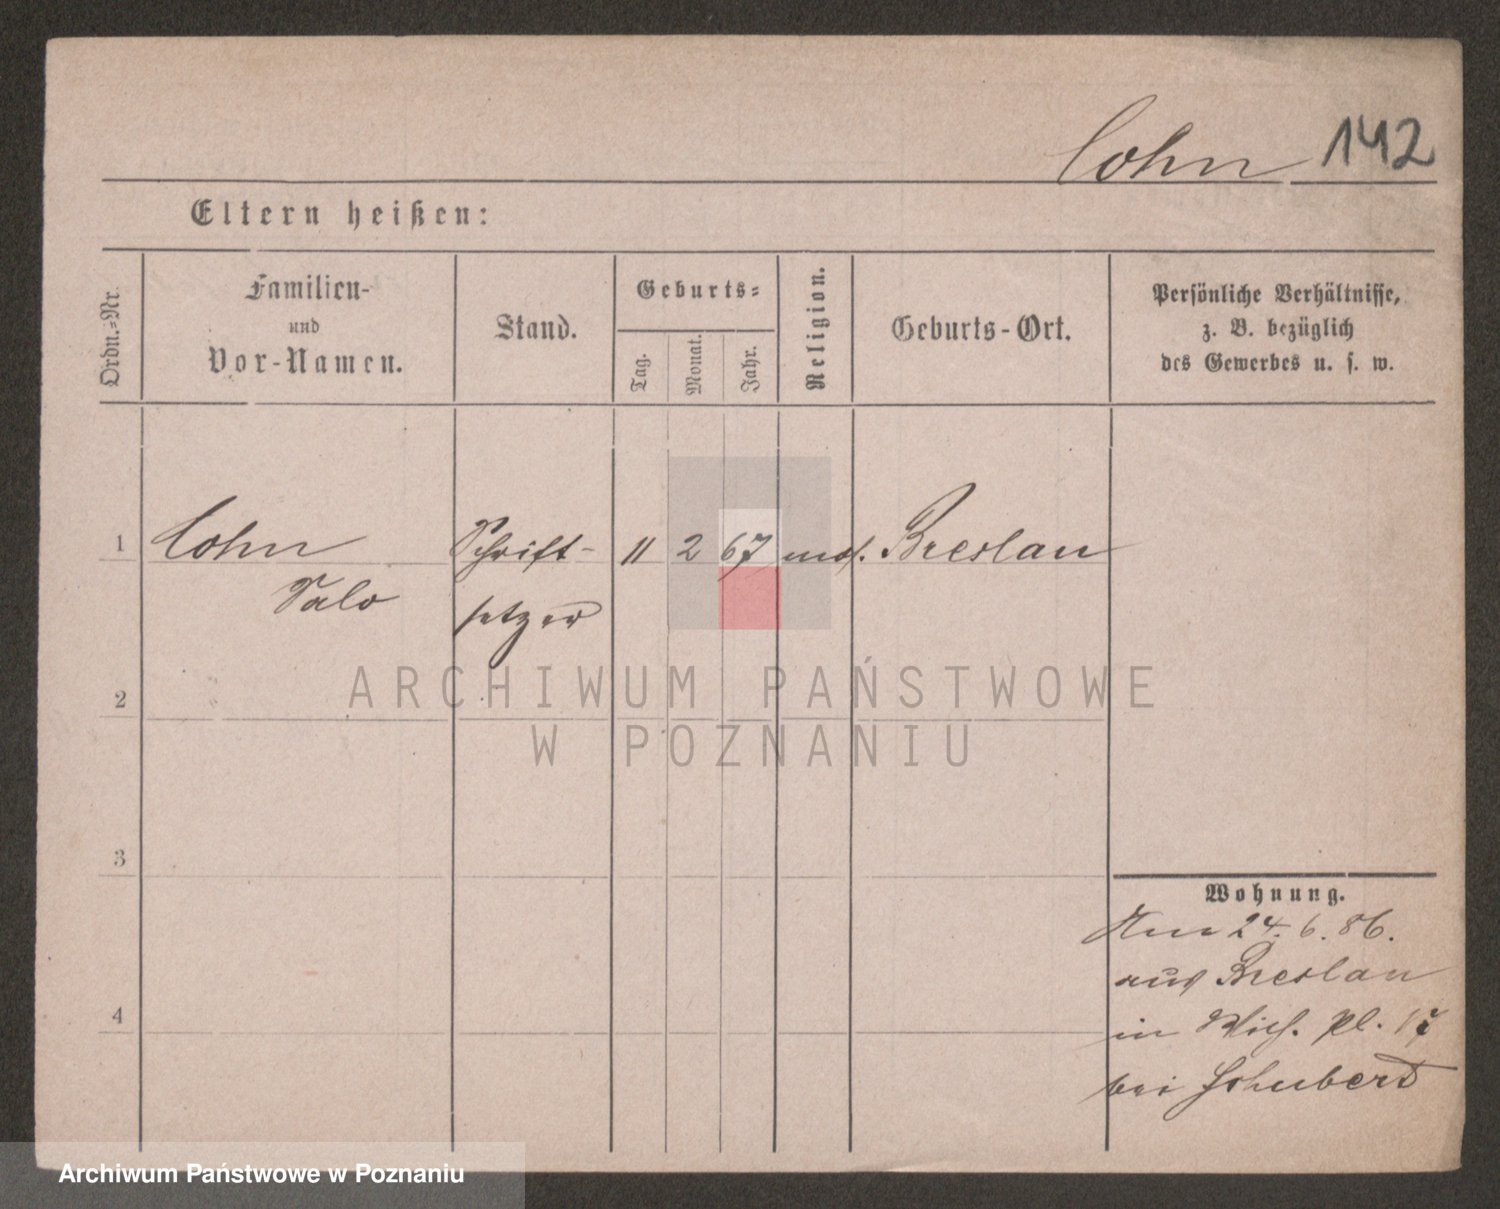 Cohn 142
Eltern heißen:
Ordn.=Nr.
Familien-
und
Vor-Namen.
Stand.
Geburts=
Tag.
Monat.
Jahr.
Religion.
Geburts-Ort.
Persönliche Verhältnisse,
z. B. bezüglich
des Gewerbes u. s. w.
1 Cohn Schrift- 11 2 67 mos. Breslau
Salo setzer
2
3
4
Wohnung.
24. 6. 86.
aus Breslau
in Pl. 17
bei Schubert
ARCHIWUM PAŃSTWOWE
W POZNANIU
Archiwum Państwowe w Poznaniu